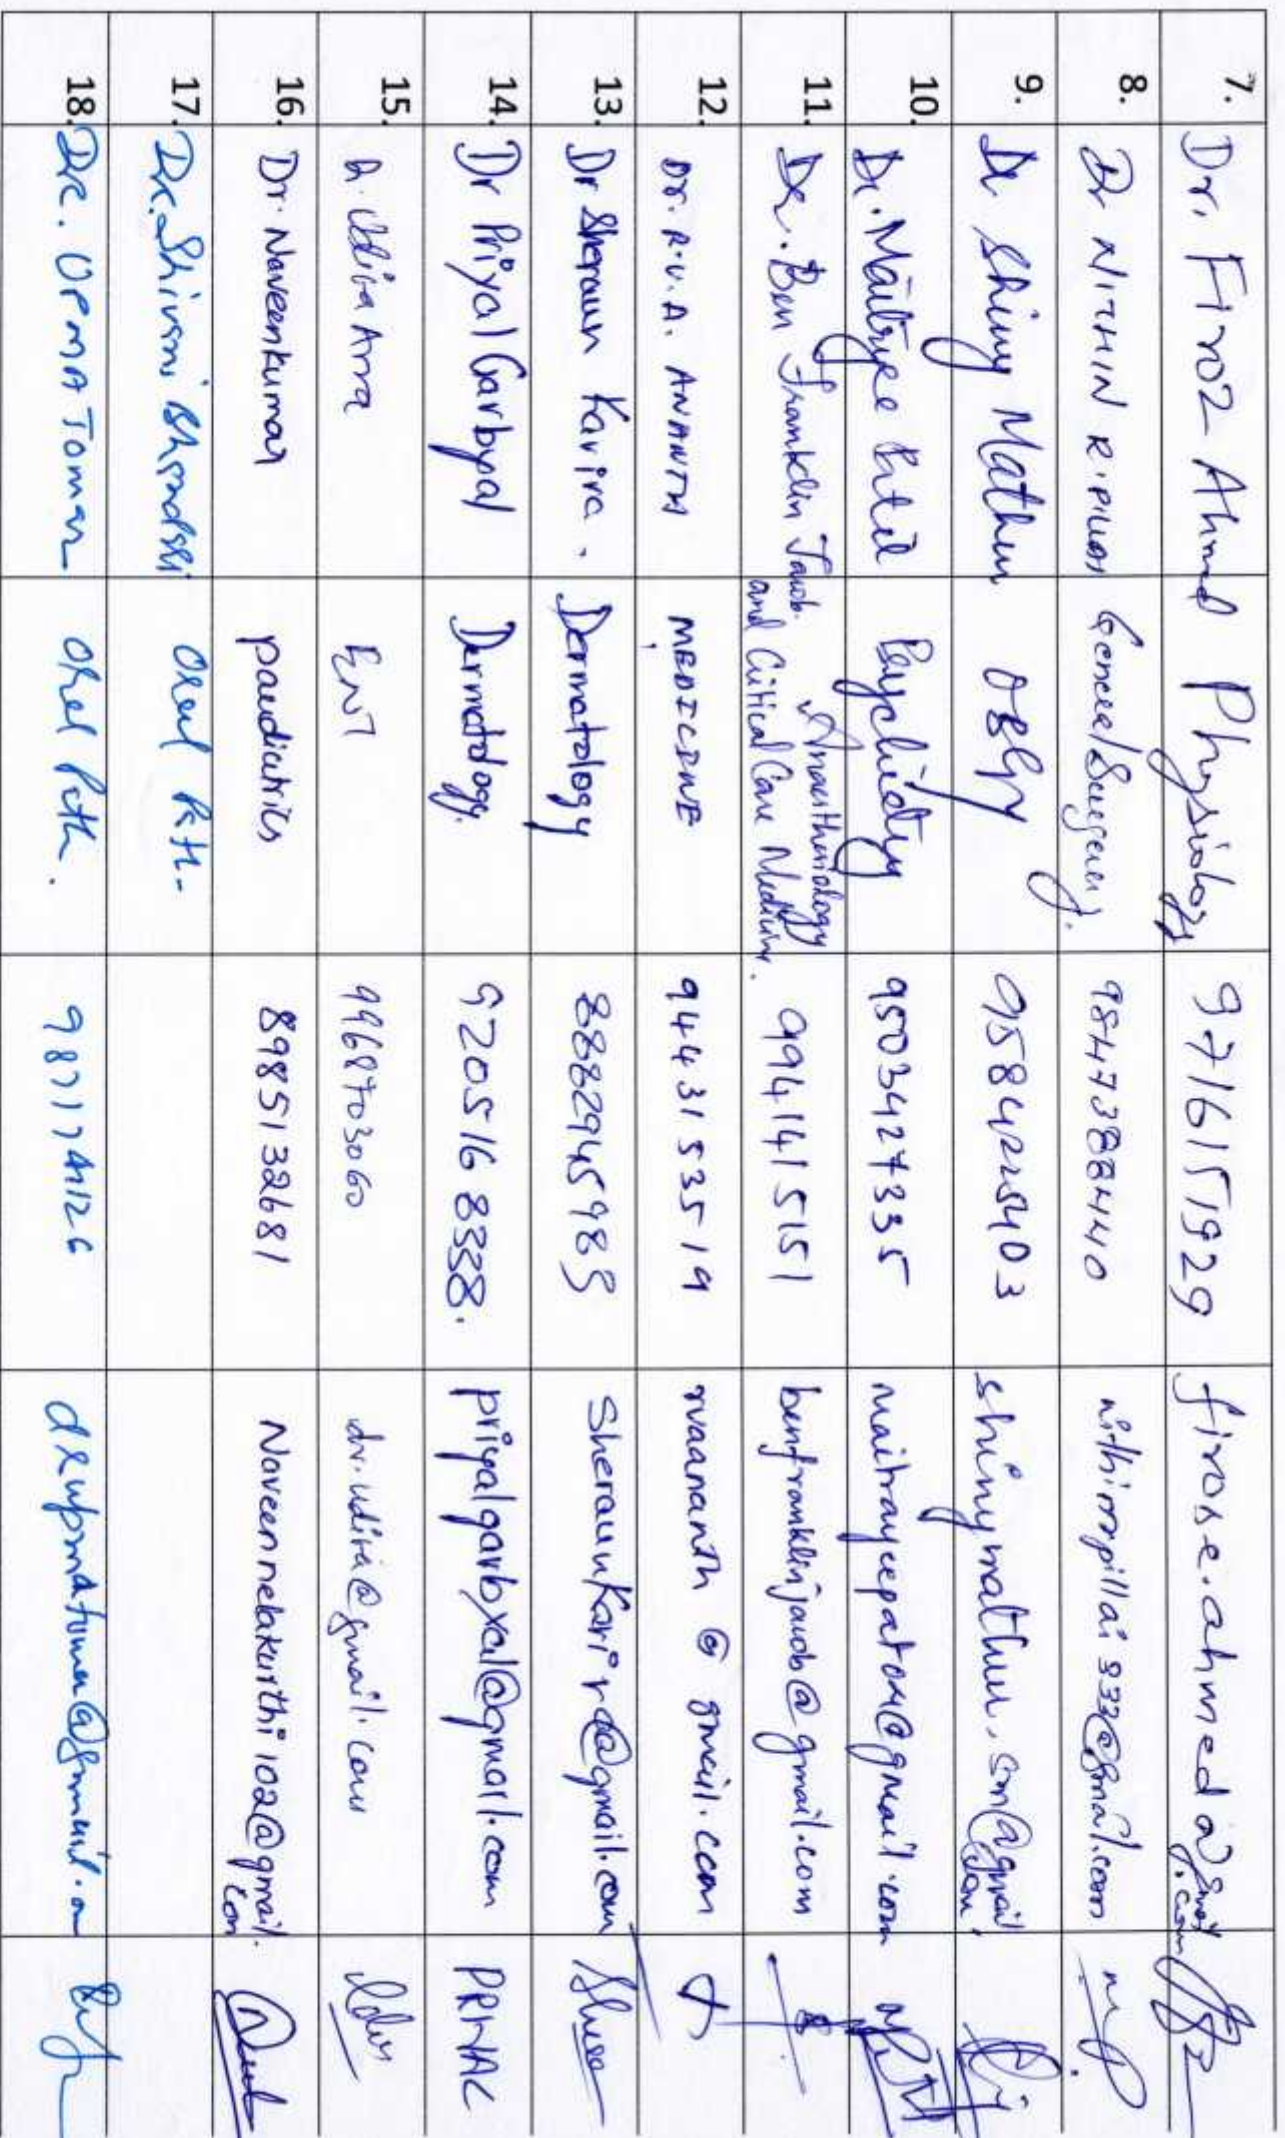 7. Dr. Firoz Ahmed Physiology 9716151929 firose.ahmed@gmail.com
8. Dr NITHIN R. PILLAI General Surgery. 9847388440 nithinrpillai333@gmail.com
9. Dr Shiny Mathew OBGY 9584225403 shinymathew.sm@gmail.com
10. Dr. Maitrye Patil Psychiatry 9503427335 @gmail.com
11. Dr. Ben Franklin Jacob. Anaesthesiology and Critical Care Medicine. 9941415151 benfranklinjacob@gmail.com
12. Dr. R.V.A. ANANTH MEDICINE 9443153519 rvaananth@gmail.com
13. Dr Sheraun Karira. Dermatology 8882945985 SheraunKarira@gmail.com
14. Dr Priyal Garbyal Dermatology. 9205168338. priyalgarbyal@gmail.com PRIYAL
15. Dr. Udira Arora ENT 9968703060 dr.udira@gmail.com
16. Dr. Naveenkumar paediatrics 8985132681 Naveennelakurthi102@gmail.com
17. Dr. Shivani Oral Path.
18. Dr. UPMA Tomar Oral Path. drupmatomar@gmail.